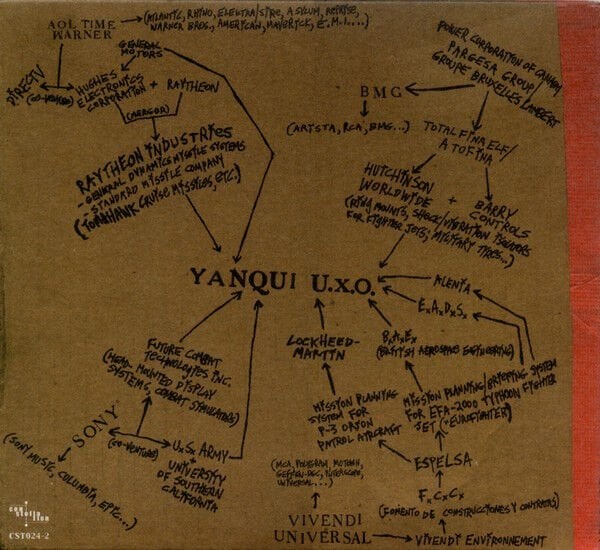 AOL TIME
WARNER
(ATLANTIC, RHINO, ELEKTRA/SIRE, ASYLUM, REPRISE,
WARNER BROS., AMERICAN, MAVERICK, E.M.I....)
DIRECTV
(CO-VENTURE)
GENERAL
MOTORS
HUGHES
ELECTRONICS
CORPORATION
+ RAYTHEON
(MERGER)
RAYTHEON INDUSTRIES
-GENERAL DYNAMICS MISSILE SYSTEMS
-STANDARD MISSILE COMPANY
(TOMAHAWK CRUISE MISSILES, ETC.)
POWER CORPORATION OF CANADA/
PARGESA GROUP/
GROUPE BRUXELLES LAMBERT
BMG
(ARISTA, RCA, BMG...)
TOTAL FINA ELF/
ATOFINA
HUTCHINSON
WORLDWIDE
+
BARRY
CONTROLS
MOUNTS, SHOCK/VIBRATION ISOLATORS
FOR FIGHTER JETS, MILITARY TYRES...)
YANQUI U.X.O.
ALENIA
E.A.D.S.
FUTURE COMBAT
TECHNOLOGIES INC.
(HEAD-MOUNTED DISPLAY
SYSTEMS, COMBAT SIMULATORS)
LOCKHEED-
MARTIN
B.A.E.
(BRITISH AEROSPACE ENGINEERING)
MISSION PLANNING
SYSTEM FOR
P-3 ORION
PATROL AIRCRAFT
MISSION PLANNING/BRIEFING SYSTEM
FOR EFA-2000 TYPHOON FIGHTER
JET ("EUROFIGHTER")
SONY
(CO-VENTURE)
U.S. ARMY
+
UNIVERSITY
OF SOUTHERN
CALIFORNIA
(SONY MUSIC, COLUMBIA, EPIC...)
(MCA, POLYGRAM, MOTOWN,
GEFFEN-DGC, INTERSCOPE,
UNIVERSAL...)
ESPELSA
F.C.C.
(FOMENTO DE CONSTRUCCIONES Y CONTRATAS)
VIVENDI
UNIVERSAL
VIVENDI ENVIRONNEMENT
constellation
CST024-2